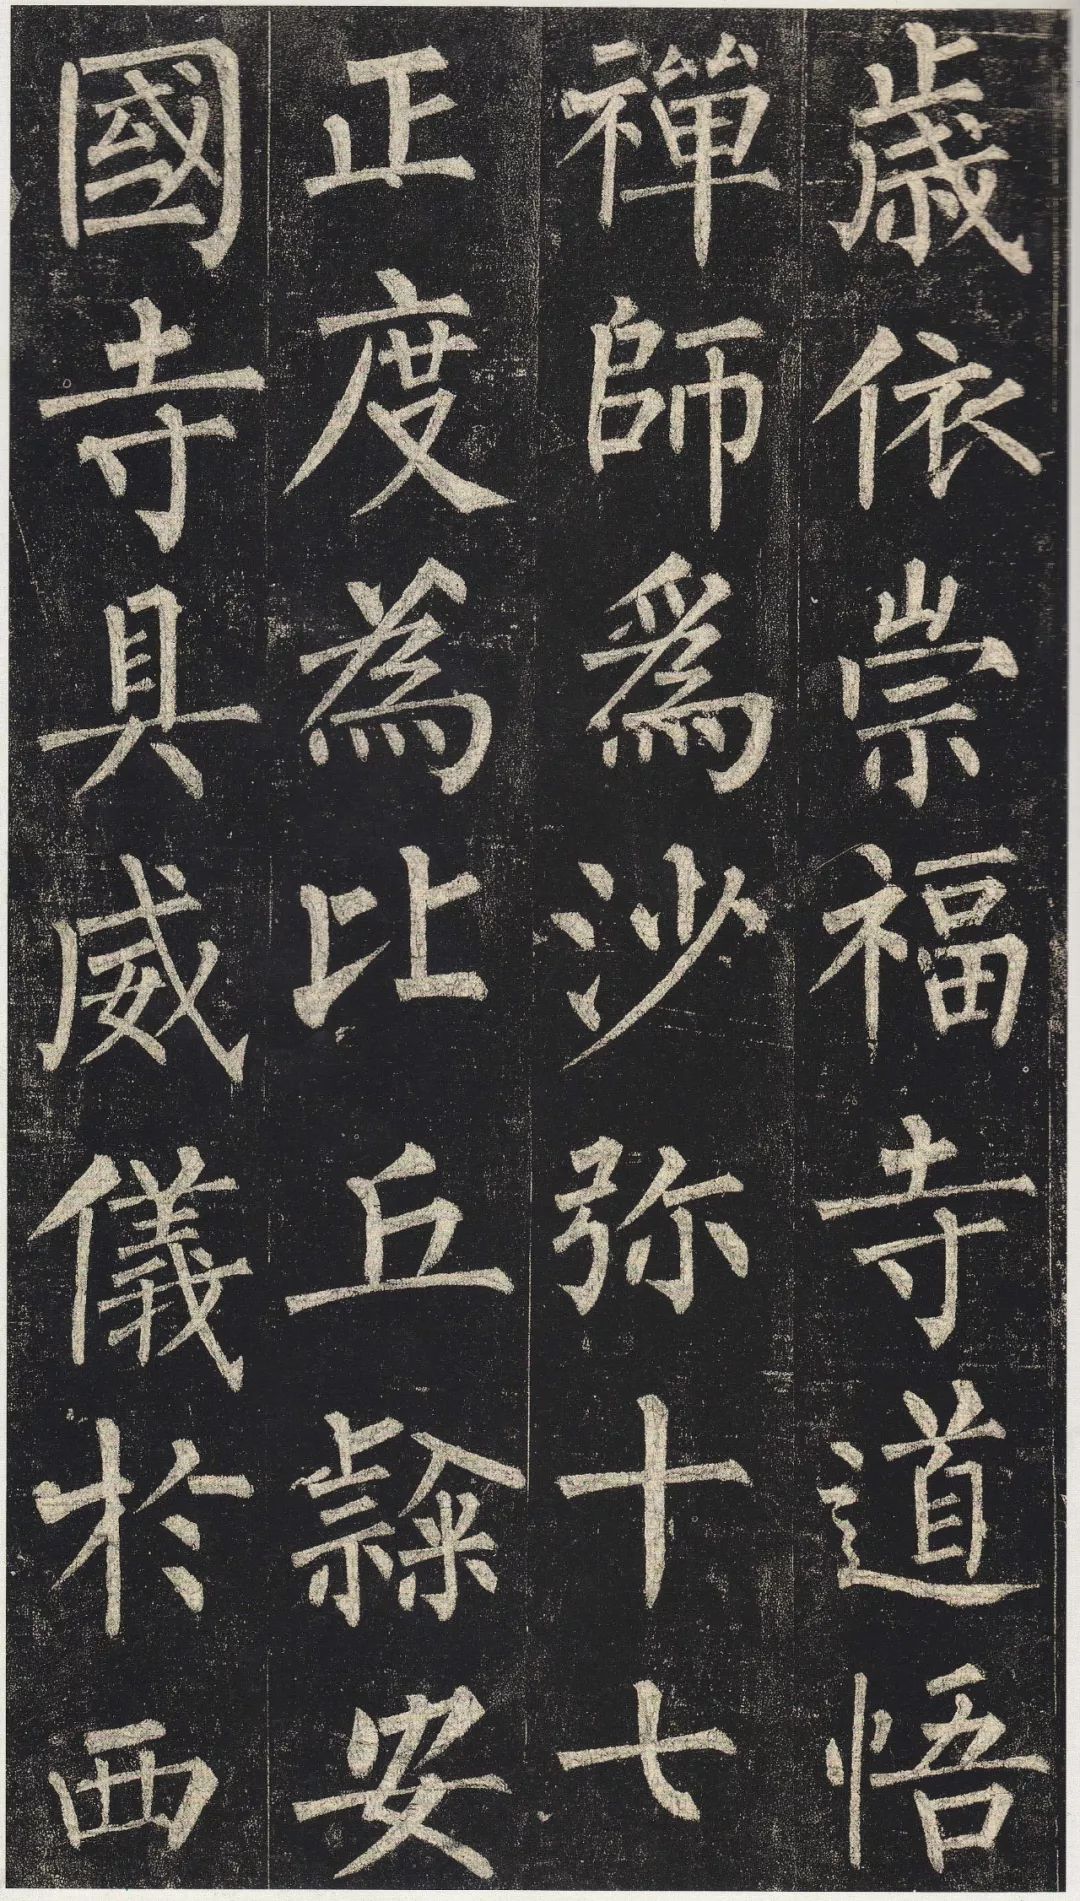 歲依崇福寺道悟
禪師爲沙弥十七
正度為比丘隸安
國寺具威儀於西